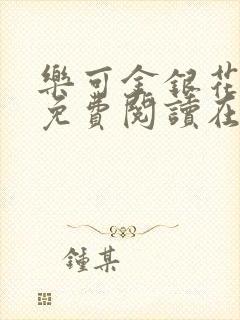 樂可金銀花
免費閱讀在
鍾某